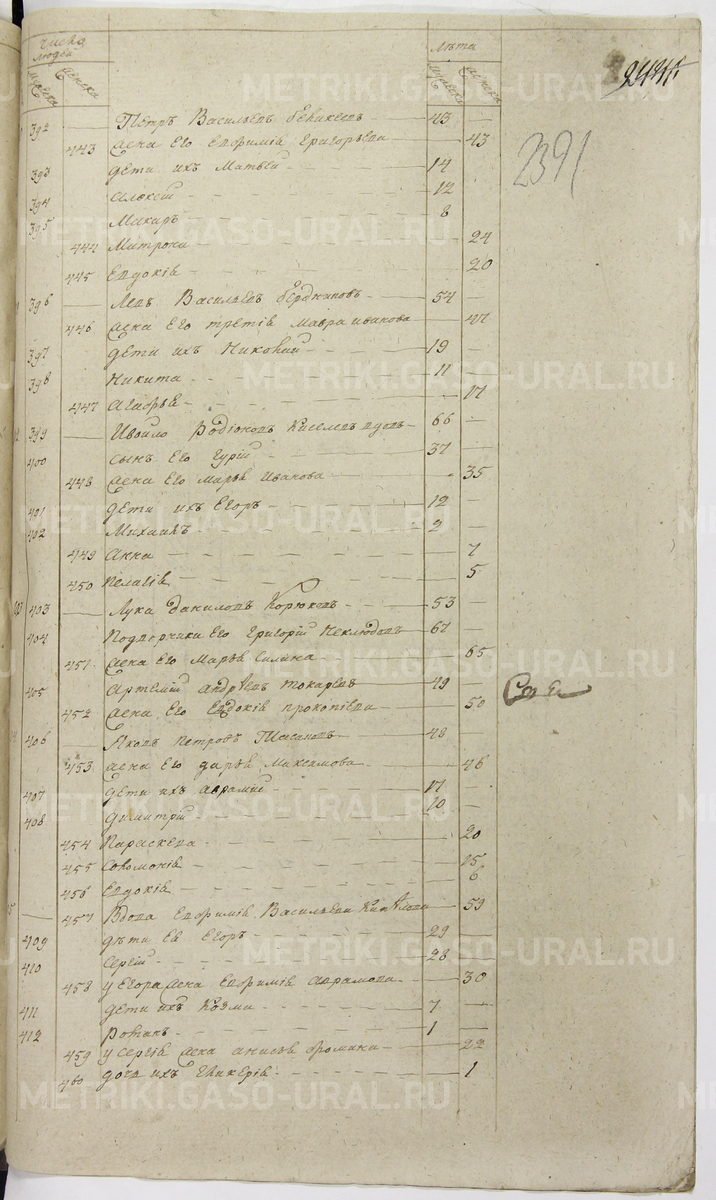 Числа людей Лѣта
мужеска женска мужеска женска
244
2391
392 Петръ Васильевъ 43
443 жена Его Евфимія Григорьева 43
393 дети ихъ Матвей 14
394 Алексій 12
395 Макаръ 8
444 Матрона 24
445 Евдокія 20
396 Левъ Васильевъ 54
446 жена Его третія Мавра иванова 47
397 дети ихъ Николай 19
398 Никита 11
447 Агафья 17
399 Родіоновъ Киселевъ вдовъ 66
400 сынъ Его Гурій 37
448 жена Его Марья Иванова 35
401 дети ихъ Егоръ 12
402 Михаилъ 2
449 Анна 7
450 Пелагія 5
403 Лука Даниловъ Корюковъ 53
404 Его Григорій Неклюдовъ 67
451 жена Его Марья 65
405 Артемій андреевъ токаревъ 49
452 жена Его Евдокія прокопіева 50
406 Яковъ Петровъ 48
453 жена Его дарья Максимова 46
407 дети ихъ аврамій 17
408 димитрій 10
454 Параскева 20
455 Соломонія 15
456 Евдокія 6
457 Вдова Евфимія Васильева 59
409 дѣти Ея Егоръ 29
410 Сергій 28
458 у Егора жена Евфимія аврамова 30
411 дети ихъ Козма 7
412 Романъ 1
459 у Сергія жена анисья фомина 22
460 дочь ихъ Гликерія 1
METRIKI.GASO-URAL.RU